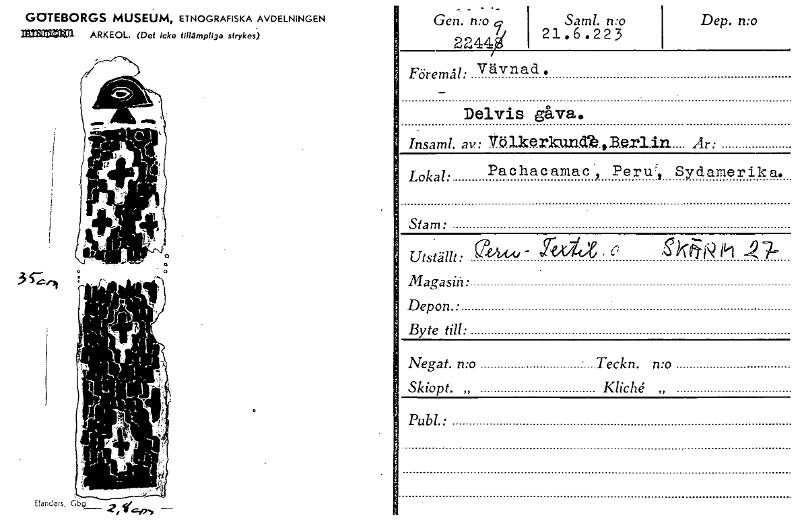 GÖTEBORGS MUSEUM, ETNOGRAFISKA AVDELNINGEN
ARKEOL. (Det icke tillämpliga strykes)
35 cm
Elanders, Gbg
2,8 cm
Gen. n:o Saml. n:o Dep. n:o
9
22448 21.6.223
Föremål: Vävnad.
Delvis gåva.
Insaml. av: Völkerkunde, Berlin År:
Lokal: Pachacamac, Peru, Sydamerika.
Stam:
Utställt: Peru-Textil. SKÄRM 27
Magasin:
Depon.:
Byte till:
Negat. n:o Teckn. n:o
Skiopt. „ Kliché „
Publ.: